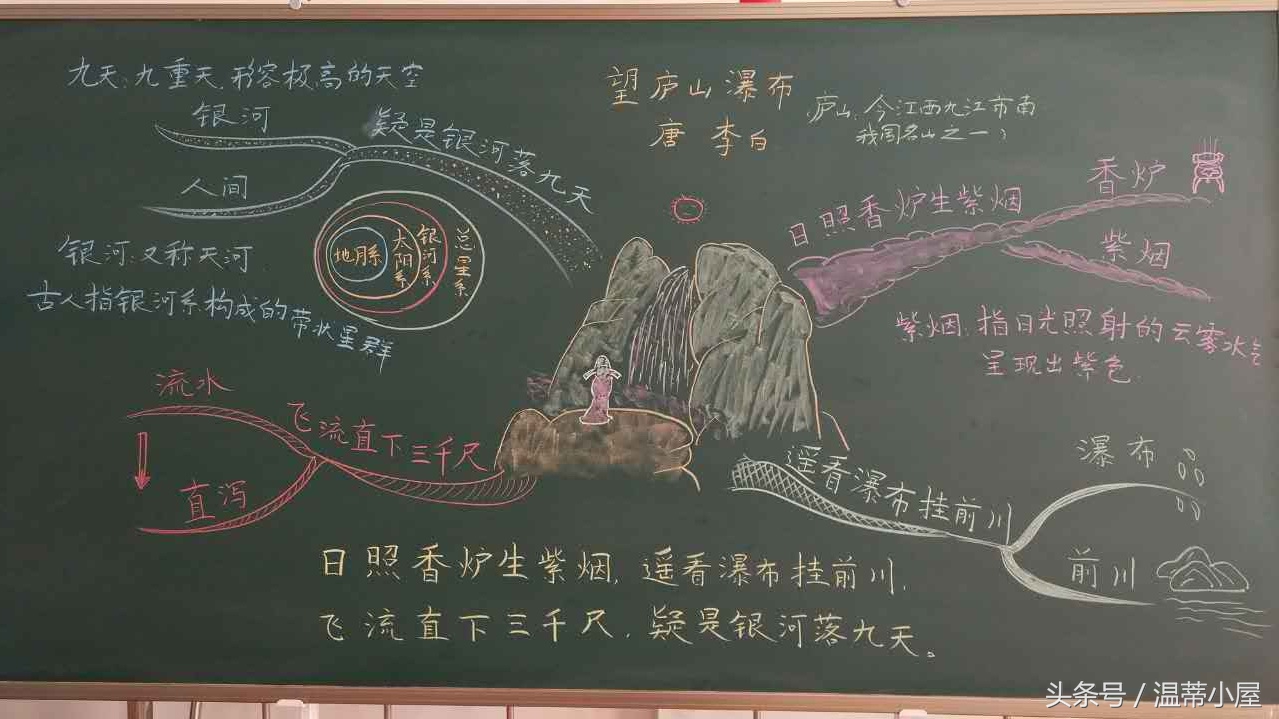 九天:九重天,形容极高的天空
银河
疑是银河落九天
人间
地月系
太阳系
银河系
总星系
银河:又称天河
古人指银河系构成的带状星群
望庐山瀑布
唐 李白
(庐山:今江西九江市南
我国名山之一)
日照香炉生紫烟
香炉
紫烟
紫烟:指日光照射的云雾水气
呈现出紫色
流水
飞流直下三千尺
直泻
遥看瀑布挂前川
瀑布
前川
日照香炉生紫烟,遥看瀑布挂前川,
飞流直下三千尺,疑是银河落九天。
头条号 / 温蒂小屋